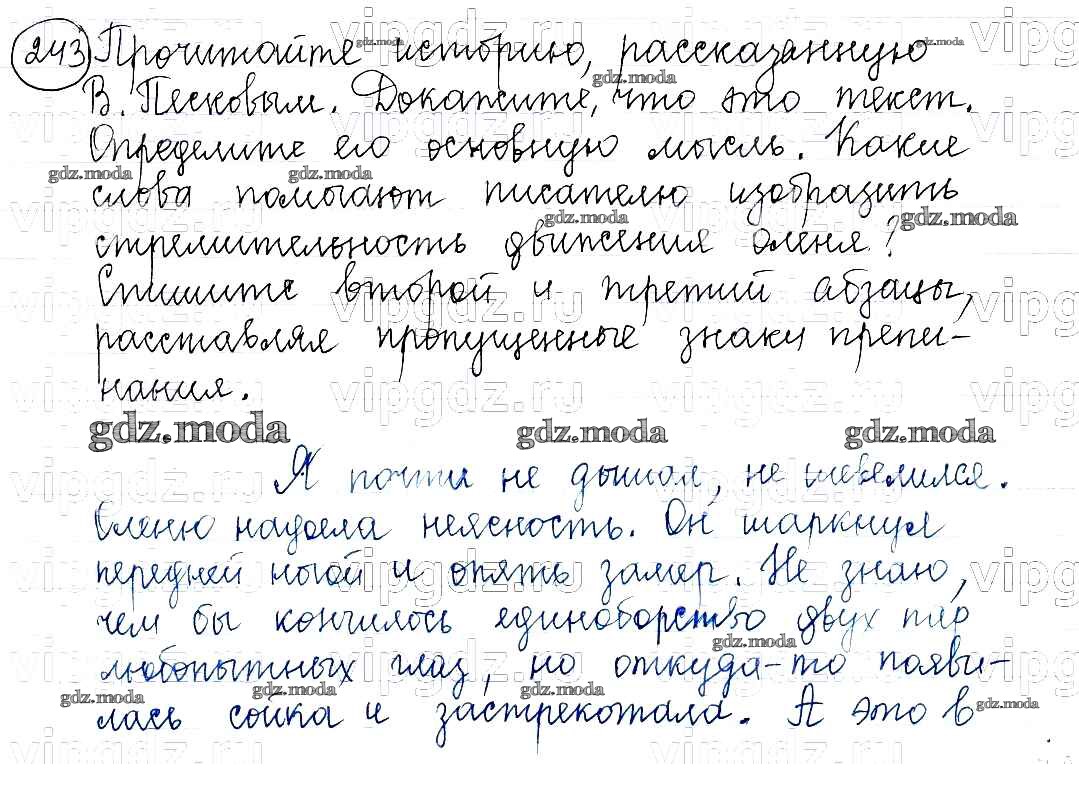 243 Прочитайте историю, рассказанную
В. Песковым. Докажите, что это текст.
Определите его основную мысль. Какие
слова помогают писателю изобразить
стремительность движения оленя?
Спишите второй и третий абзацы,
расставляя пропущенные знаки препи-
нания.
gdz.moda gdz.moda gdz.moda
Я почти не дышал, не шевелился.
Оленю надоела неясность. Он шаркнул
передней ногой и опять замер. Не знаю,
чем бы кончилось единоборство двух пар
любопытных глаз, но откуда-то появи-
лась сойка и застрекотала. А это в